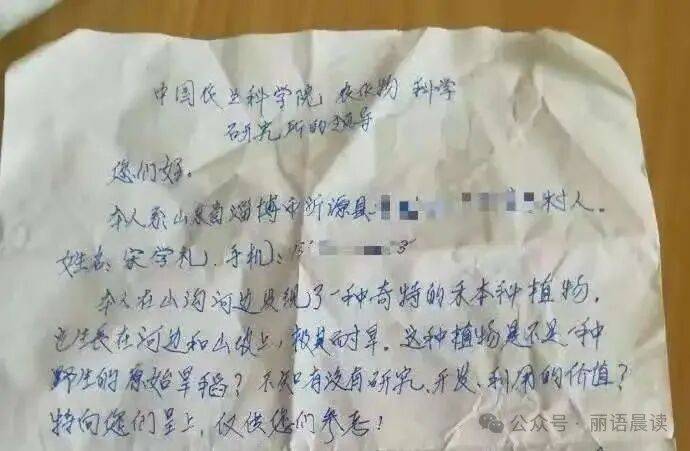 中国农业科学院 农作物 科学
研究所的领导
您们好。
本人系山东省淄博市沂源县 村人。
姓名:宋学礼、手机:
本人在山沟河边发现了一种奇特的禾本种植物,
它生长在河边和山坡上,极其耐旱。这种植物是不是一种
野生的原始旱稻?不知有没有研究、开发、利用的价值?
特向您们呈上,仅供您们参考!
公众号·丽语晨读